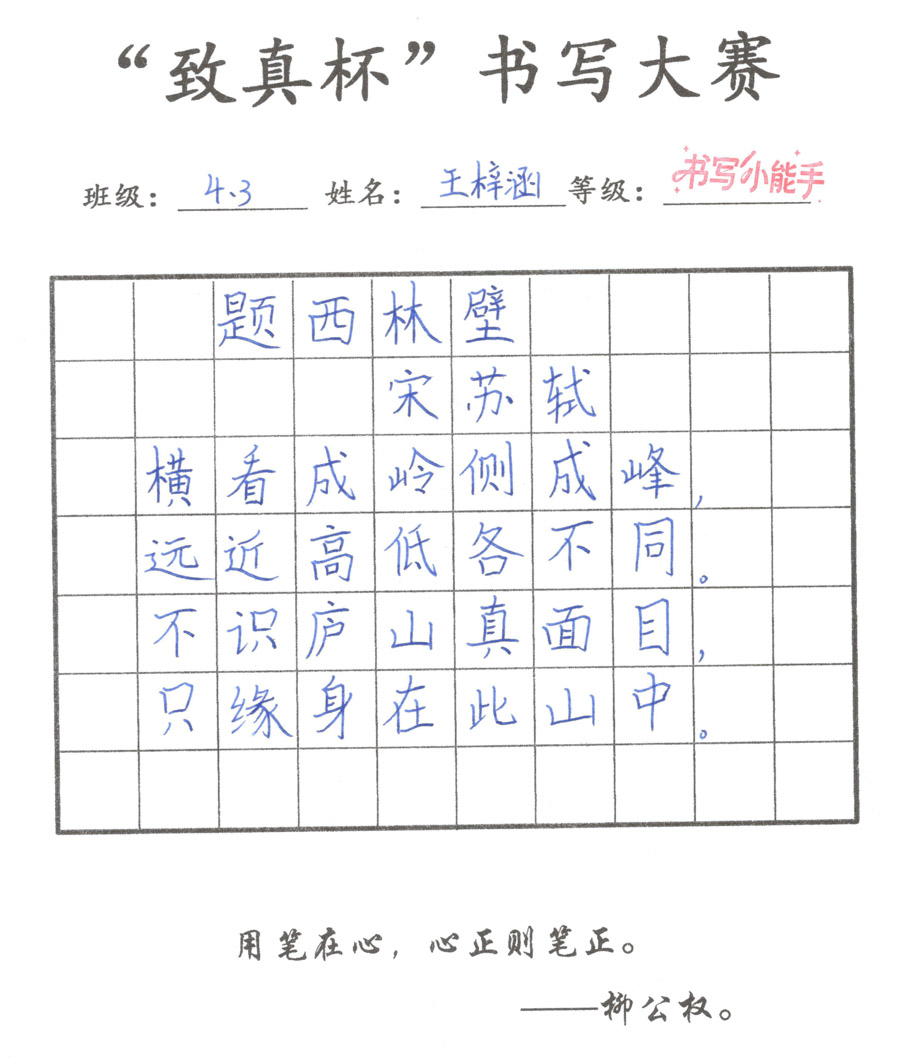 “致真杯”书写大赛
班级： 4.3 姓名： 王梓涵 等级： 书写小能手
题西林壁
宋苏轼
横看成岭侧成峰，
远近高低各不同。
不识庐山真面目，
只缘身在此山中。
用笔在心，心正则笔正。
——柳公权。